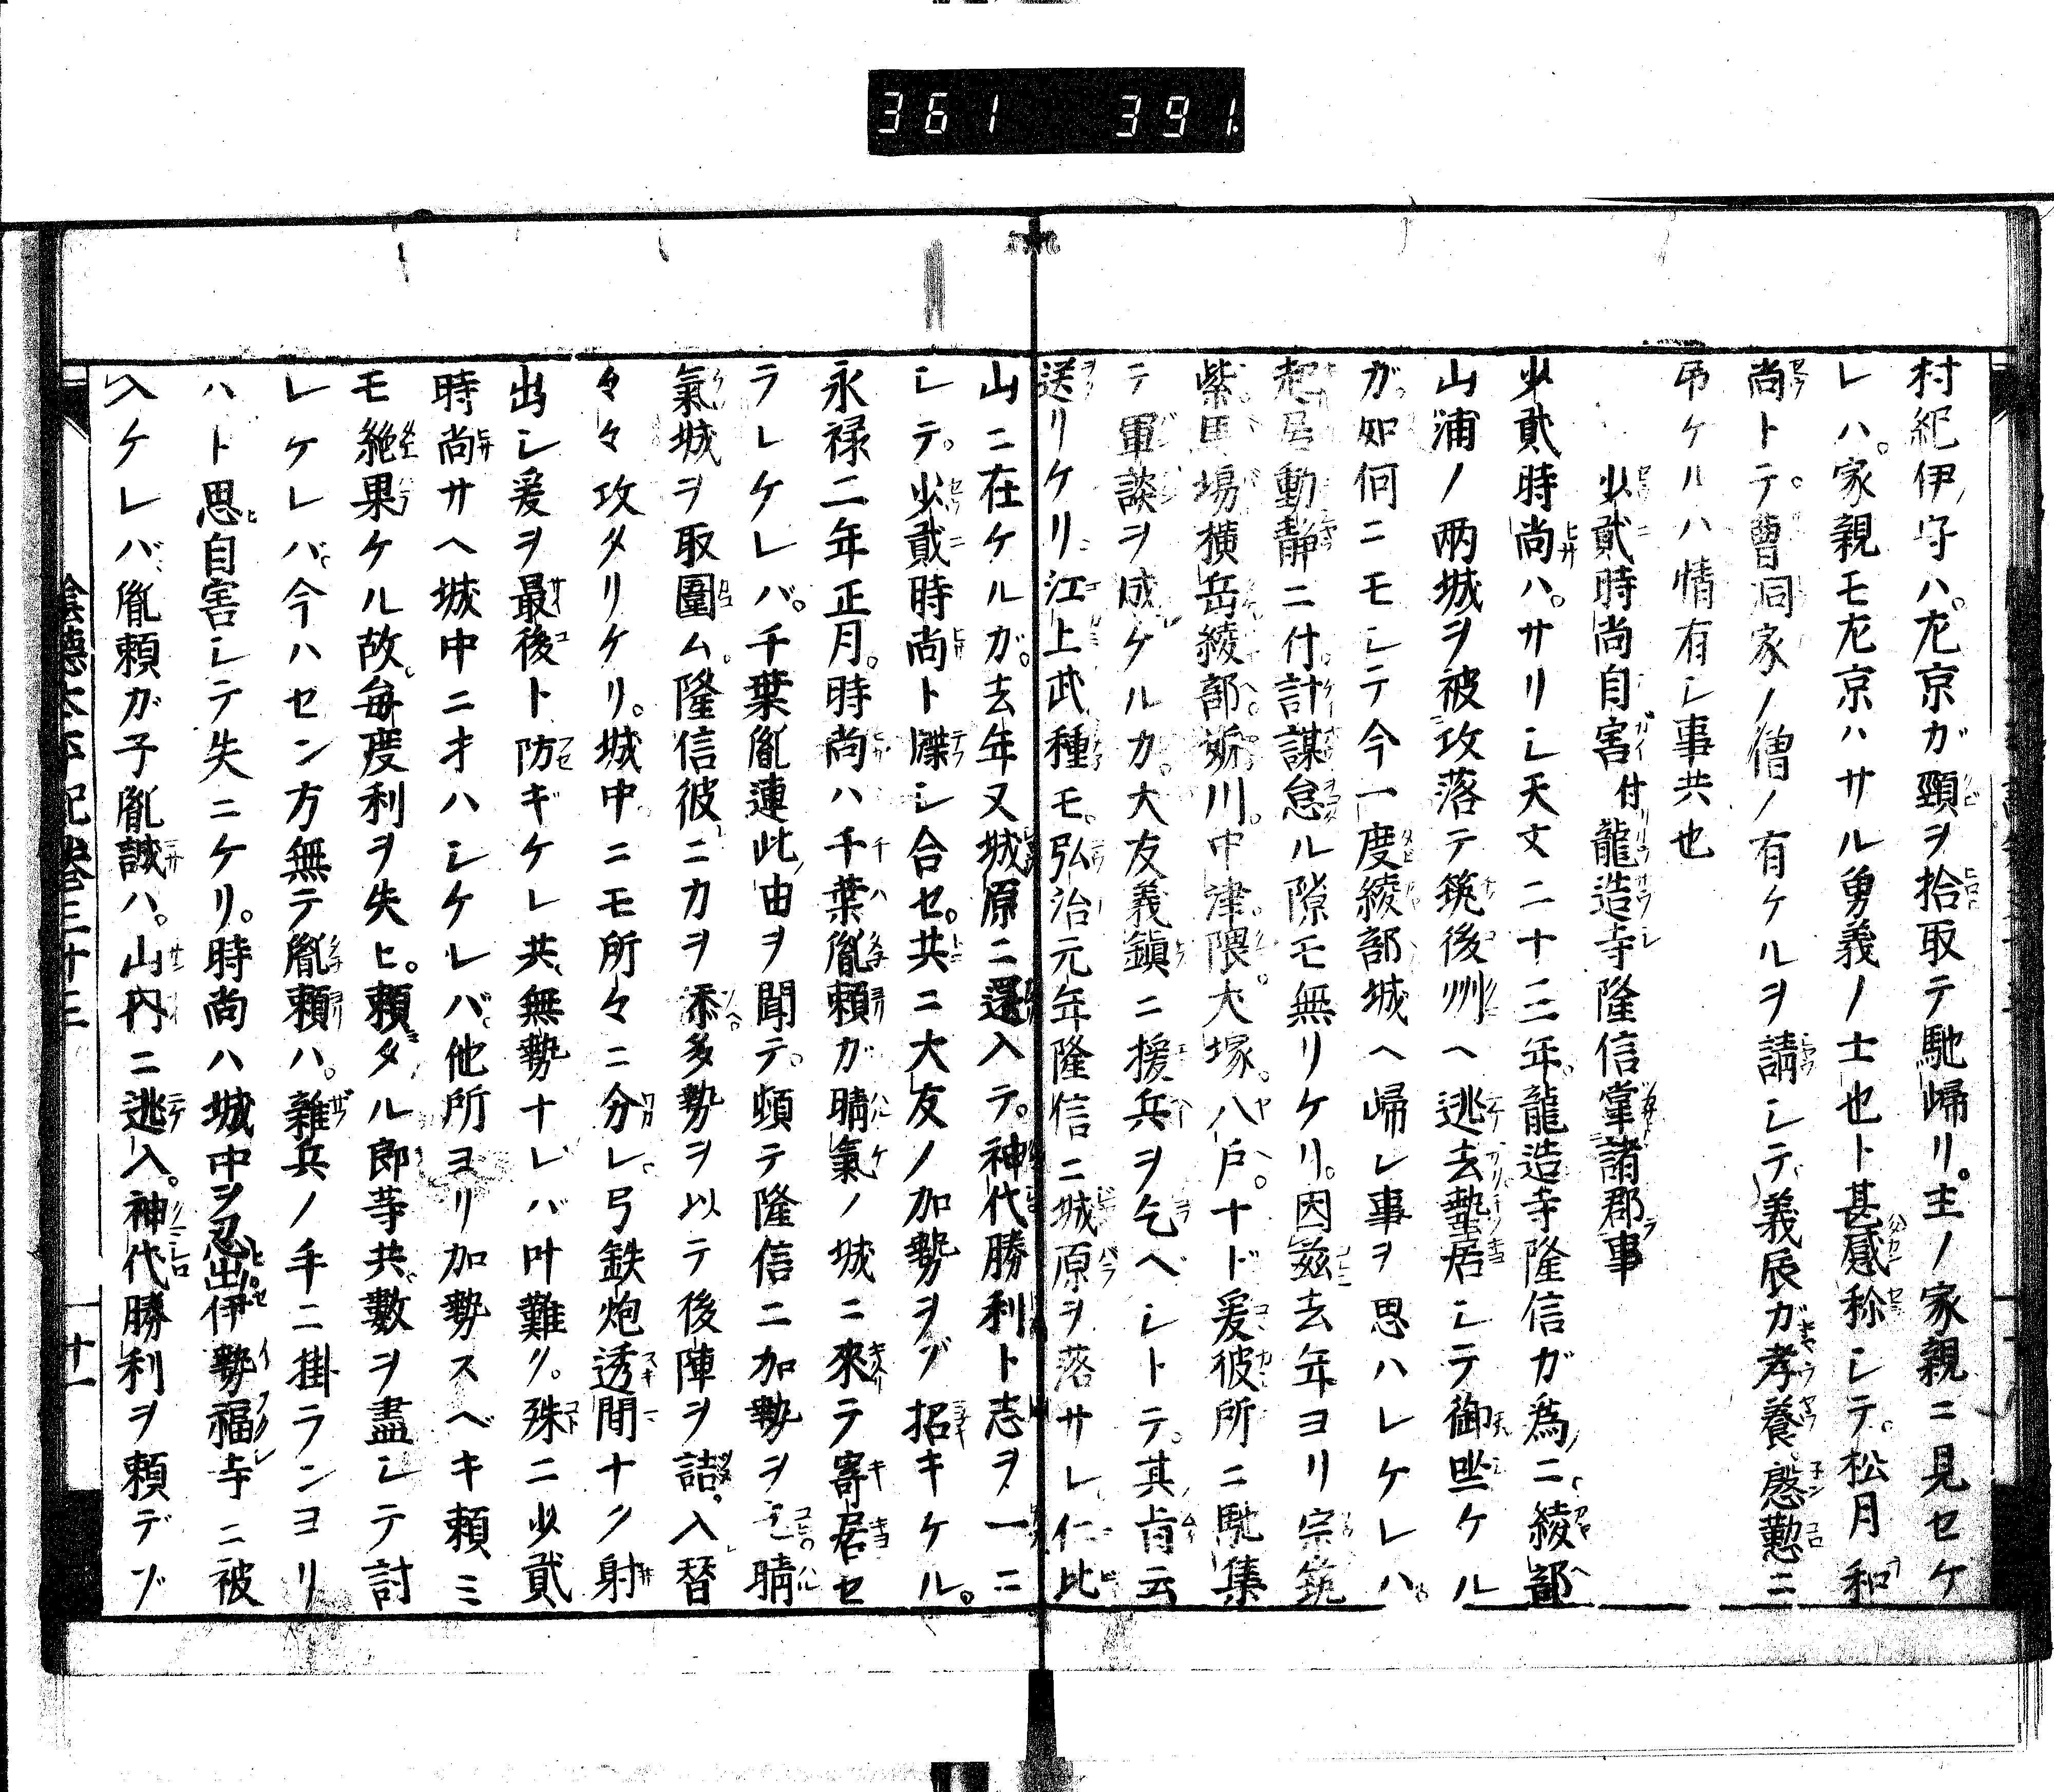 361 391
村紀伊守ハ。左京ガ頸ヲ拾取テ馳歸リ。主ノ家親ニ見セケ
レハ。家親モ左京ハサル勇義ノ士也ト甚感称シテ。松月和
尚トテ曹洞家ノ僧ノ有ケルヲ請シテ義辰ガ孝養慇懃ニ
弔ケルハ情有シ事共也
少貳時尚自害付龍造寺隆信掌諸郡事
少貳時尚ハ。サリシ天文二十三年龍造寺隆信ガ為ニ綾部
山浦ノ兩城ヲ被攻落テ筑後州ヘ逃去蟄居シテ御坐ケル
ガ如何ニモシテ今一度綾部城ヘ歸レ事ヲ思ハレケレハ
起居動静ニ付計謀怠ル隙モ無リケリ。因茲去年ヨリ宗筑
紫馬場横岳綾部姉川。中津隈。犬塚。八戸。ナド爰彼所ニ馳集
テ軍談ヲ成ケルカ。大友義鎮ニ援兵ヲ乞ベシトテ。其旨云
送リケリ江上武種モ。弘治元年隆信ニ城原ヲ落サレ仁比
山ニ在ケルガ。去年又城原ニ還入テ。神代勝利ト志ヲ一ニ
シテ。少貳時尚ト牒シ合セ。共ニ大友ノ加勢ヲゾ招キケル。
永禄二年正月。時尚ハ千葉胤頼ガ晴氣ノ城ニ來テ寄居セ
ラレケレバ。千葉胤連此由ヲ聞テ。頓テ隆信ニ加勢ヲ乞晴
氣城ヲ取圍ム。隆信彼ニカヲ添多勢ヲ以テ後陣ヲ詰入替
々々攻タリケリ。城中ニモ所々ニ分レ弓鉄炮透間ナク射
出シ爰ヲ最後ト防ギケレ共無勢ナレバ叶難ク。殊ニ少貳
時尚サヘ城中ニオハシケレバ。他所ヨリ加勢スベキ頼ミ
モ絶果ケル故毎度利ヲ失ヒ。頼タル郎等共數ヲ盡シテ討
レケレバ今ハセン方無テ胤頼ハ。雜兵ノ手ニ掛ランヨリ
ハト思自害シテ失ニケリ。時尚ハ城中ヲ忍出伊勢福寺ニ被
入ケレバ胤頼ガ子胤誠ハ。山内ニ逃入。神代勝利ヲ頼デゾ
陰徳太平記巻三十三 十一